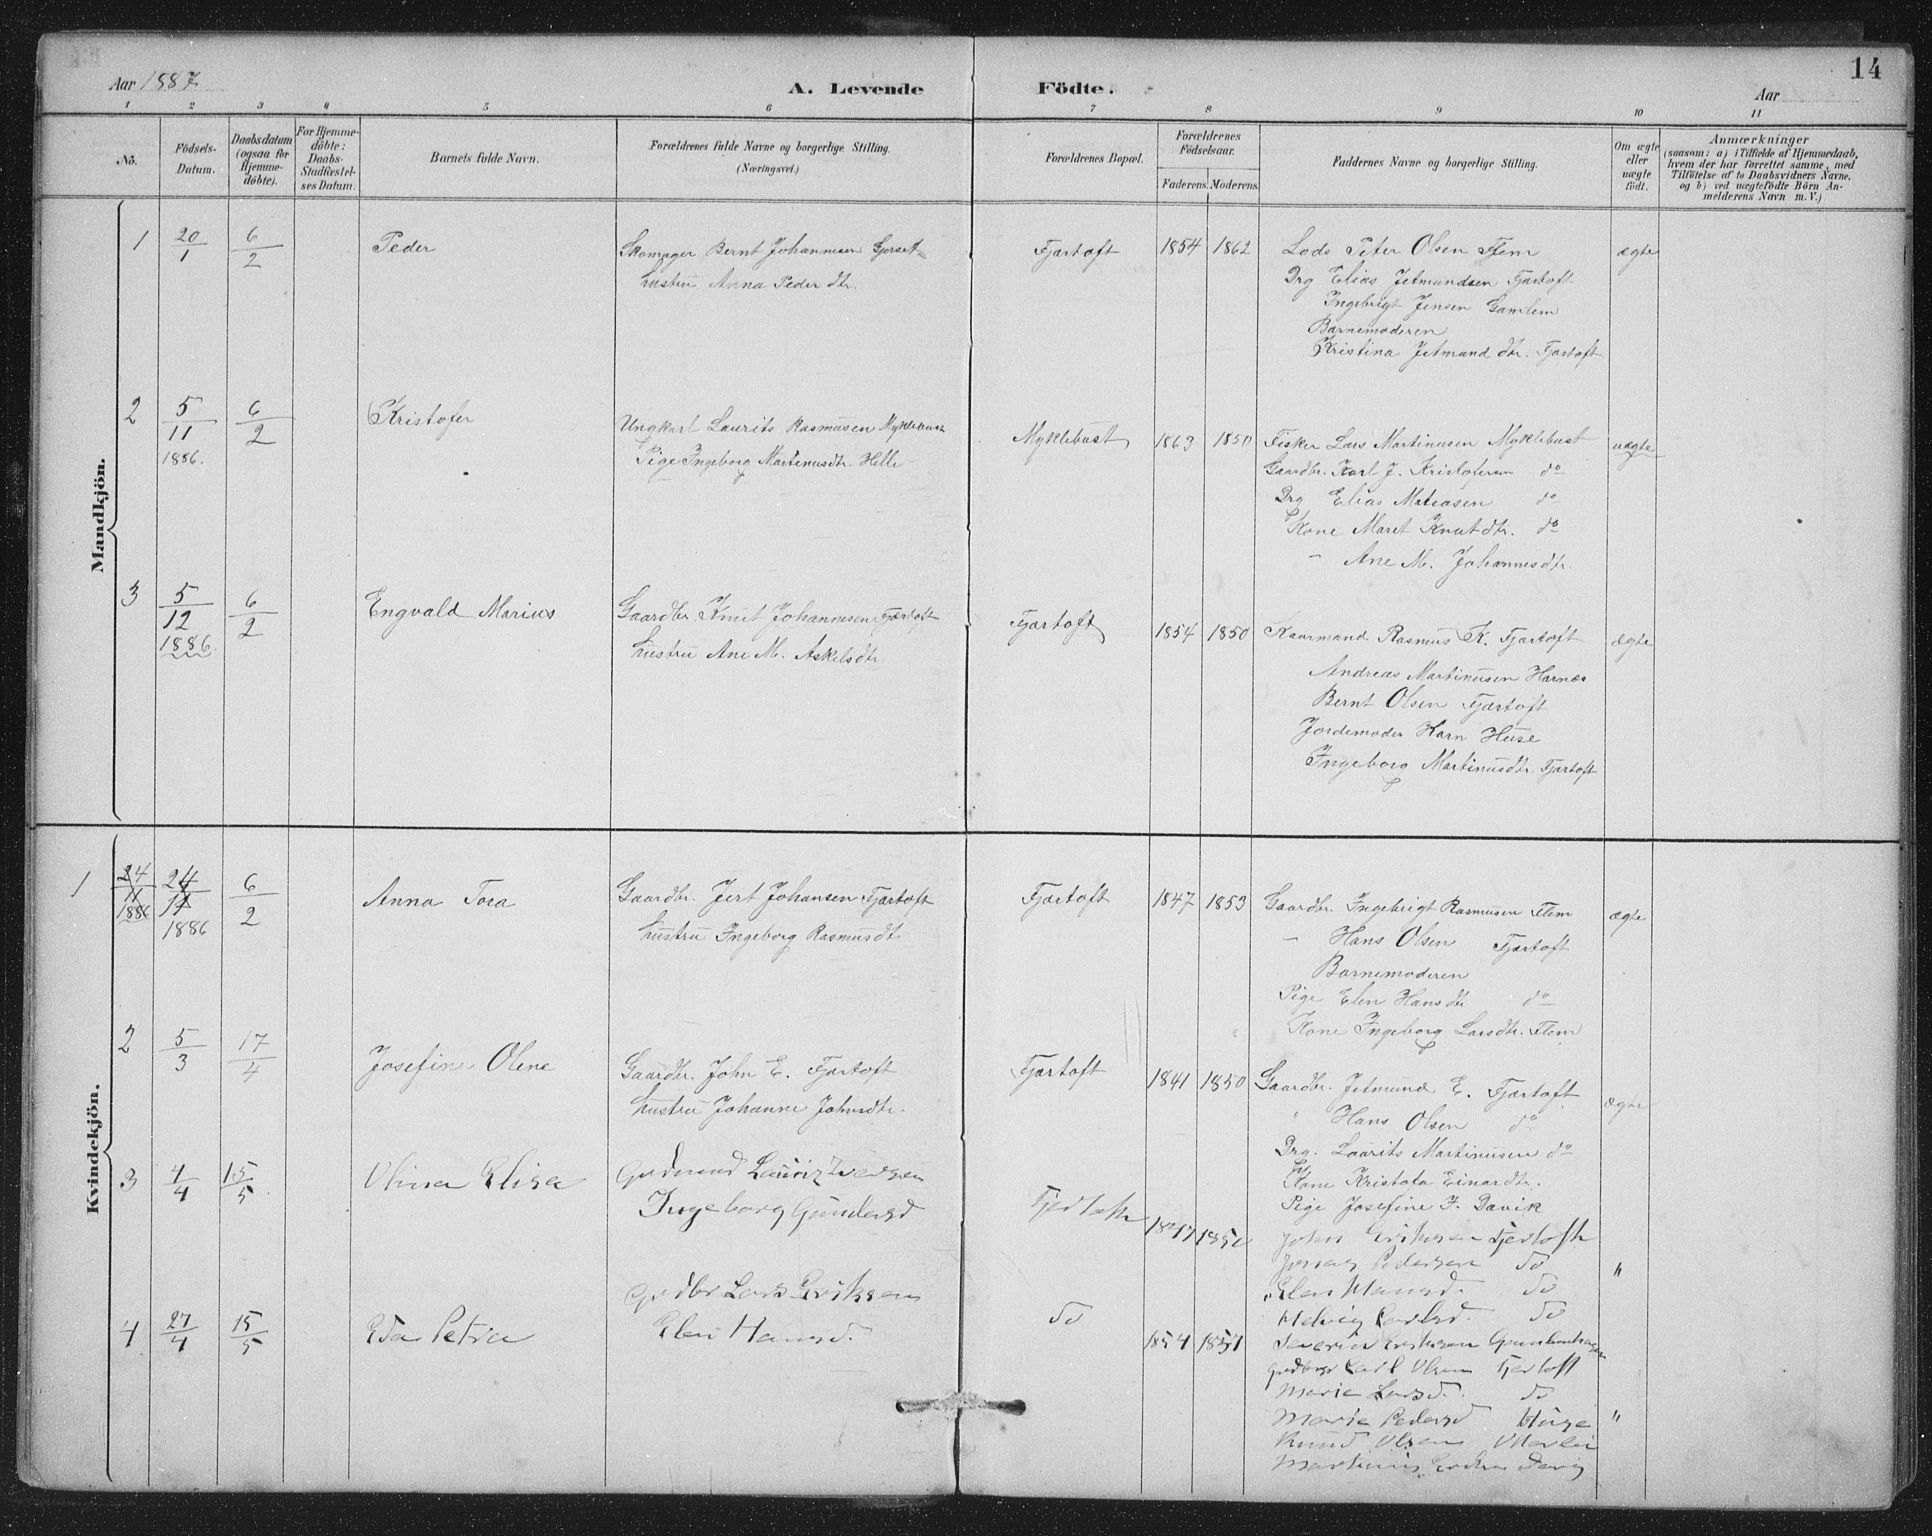 14
Aar 1887
A. Levende Födte.
Aar
1 2 3 4 5 6 7 8 9 10 11
No.
Födsels-Datum.
Daabsdatum (ogsaa for Hjemme-döbte).
For Hjemme-döbte: Daabs-Stadfæstel-ses Datum.
Barnets fulde Navn.
Forældrenes fulde Navne og borgerlige Stilling.
(Næringsvei.)
Forældrenes Bopæl.
Forældrenes Födselsaar.
Faderens. Moderens.
Faddernes Navne og borgerlige Stilling.
Om ægte eller uægte födt.
Anmærkninger
(saasom: a) i Tilfælde af Hjemmedaab,
hvem der har forrettet samme, med
Tilföielse af to Daabsvidners Navne,
og b) ved uægtefödte Börn An-
melderens Navn m. V.)
Mandkjön.
1 20/1 6/2 Peder
Skomager Bernt Johannesen Gjerset
hustru Anna Peder dtr.
Fjærtoft 1854 1862
Lods Peter Olsen Flem
Drg Elias Jetmundsen Fjærtoft
Ingebrigt Jensen Gamlem
Barnemoderen
Kristina Jetmund dtr. Fjærtoft
ægte
2 5/11 1886. 6/2 Kristofer
Ungkarl Laurits Rasmusen Myklebust
Pige Ingeborg Martinusdtr. Helle
Myklebust 1863 1850
Fisker Lars Martinusen Myklebust
Gaardbr. Karl J. Kristofersen do
Drg Elias Matiasen do
Kone Maret Knutdtr. do
" Ane M. Johannesdtr.
uægte
3 5/12 1886. 6/2 Engvald Marius
Gaardbr. Knut Johannesen Fjærtoft
hustru Ane M. Askelsdtr.
Fjærtoft 1854 1850
Kaarmand Rasmus K. Fjærtoft
Andreas Martinusen Harnæs
Bernt Olsen Fjærtoft
Jordemoder Karn Huse
Ingeborg Martinusdtr. Fjærtoft
ægte
Kvindekjön.
1 24/11 1886 24/11 1886 6/2 Anna Tora
Gaardbr. Jert Johansen Fjærtoft
hustru Ingeborg Rasmusdtr.
Fjærtoft 1847 1853
Gaardbr. Ingebrigt Rasmusen Flem
" Hans Olsen Fjærtoft
Barnemoderen
Pige Elen Hansdtr do
Kone Ingeborg Larsdtr. Flem
ægte
2 5/3 17/4 Josefine Olene
Gaardbr. John E. Fjærtoft
hustru Johanne Johnsdtr.
Fjærtoft 1841 1850
Gaardbr. Jetmund E. Fjærtoft
" Hans Olsen do
Drg. Laurits Martinusen do
Kone Kristofa Einardtr.
Pige Josefine J. Davik
ægte
3 4/4 15/5 Olina Elisa
Ingeborg Gundersd
Fjertoft 1847
John Eriksen Fjertoft
Jonas Pedersen do
Elen Hansd. do
Helvig do
"
4 27/4 15/5 Eda Petra
Grdbr Lars Eriksen
Elen Hansd.
do 1854 1851
Severin Eriksen
Grdbr Carl Olsen Fjertoft
Marie Larsd. do
Marie Pedersd Huse
Knud Olsen
"